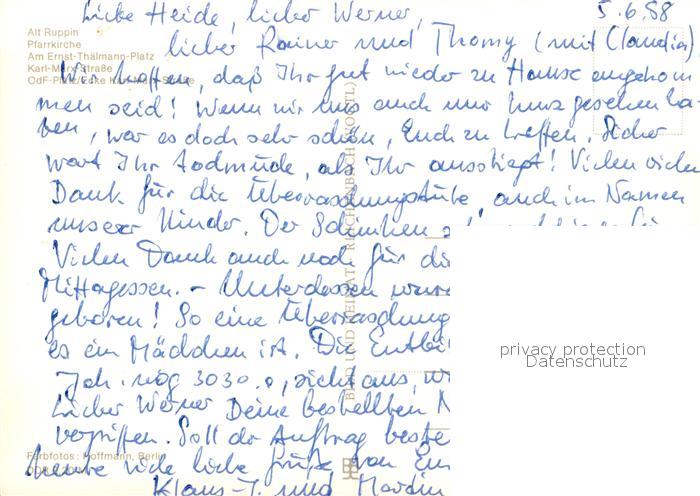 Liebe Heide, lieber Werner, 5.6.88
lieber Rainer und Thomy (mit Claudia)
Alt Ruppin
Pfarrkirche
Am Ernst-Thälmann-Platz
Karl-Marx-Straße
OdF-Platz/Ecke
Wir hoffen, daß Ihr gut wieder zu Hause angekom
men seid! Wenn wir uns auch nur kurz gesehen ha-
ben, war es doch sehr schön, Euch zu treffen. Sicher
wart Ihr todmüde, als Ihr ausstiegt! Vielen vielen
Dank für die Überraschungstüte, auch im Namen
unserer Kinder. Der Schinken
Vielen Dank auch noch für di
Mittagessen. - Unterdessen wur
geboren! So eine Überraschung
es ein Mädchen ist. Die Entbi
wog 3030, sieht aus, wi
Lieber Werner Deine bestellten
vergriffen. Soll der Auftrag beste
heute viele liebe Grüße von Eu
Klaus-J. und
Farbfotos: Hoffmann, Berlin
BILD UND HEIMAT REICHENBACH (VOGTL)
privacy protection
Datenschutz